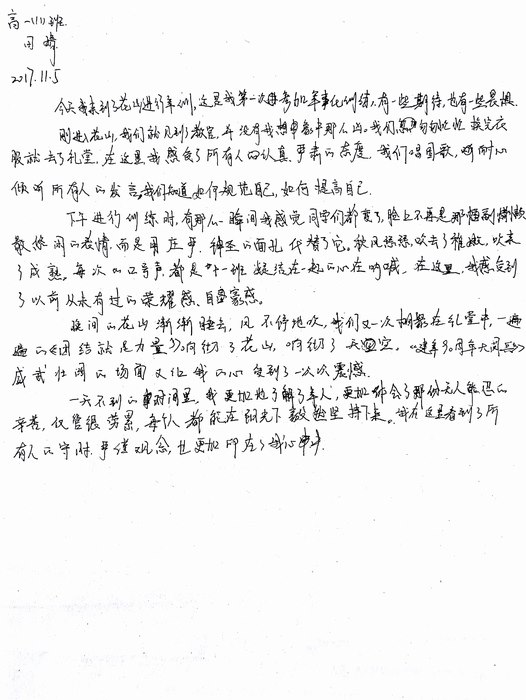 高一(11)班
田婧
2017.11.5
今天我来到了花山进行军训,这是我第一次参加军事化训练,有一些期待,也有一些畏惧.
刚进花山,我们就见到了教官,并没有我想象当中那么凶,我们急匆匆地换完衣
服就去了礼堂,在这里我感受了所有人的认真、严肃的态度,我们唱国歌,听耐心
倾听所有人的发言,我们知道如何规范自己,如何提高自己.
下午进行训练时,有那么一瞬间我感觉同学们都变了,脸上不再是那幅副懒懒
散散闲的表情,而是用庄严、神圣的面孔代替了它,秋风吹去了稚嫩,吹来
了成熟.每次的口号声,都是十一班凝结在一起的心在呐喊.在这里,我感受到
了以前从未有过的荣耀感、自豪感.
夜间的花山渐渐睡去,风不停地吹,我们又一次相聚在礼堂中,一遍
遍的《团结就是力量》响彻了花山,响彻了天空.《建军90周年大阅兵》
威武壮阔的场面又让我的心受到了一次次震感.
一天不到的时间里,我更加地了解了军人,更加体会了那份无人能忍的
辛苦,仅管很劳累,每个人都能在阳光下数坚持下来.我在这里看到了所
有人的守时、严律观念,也更加印在了我心中.